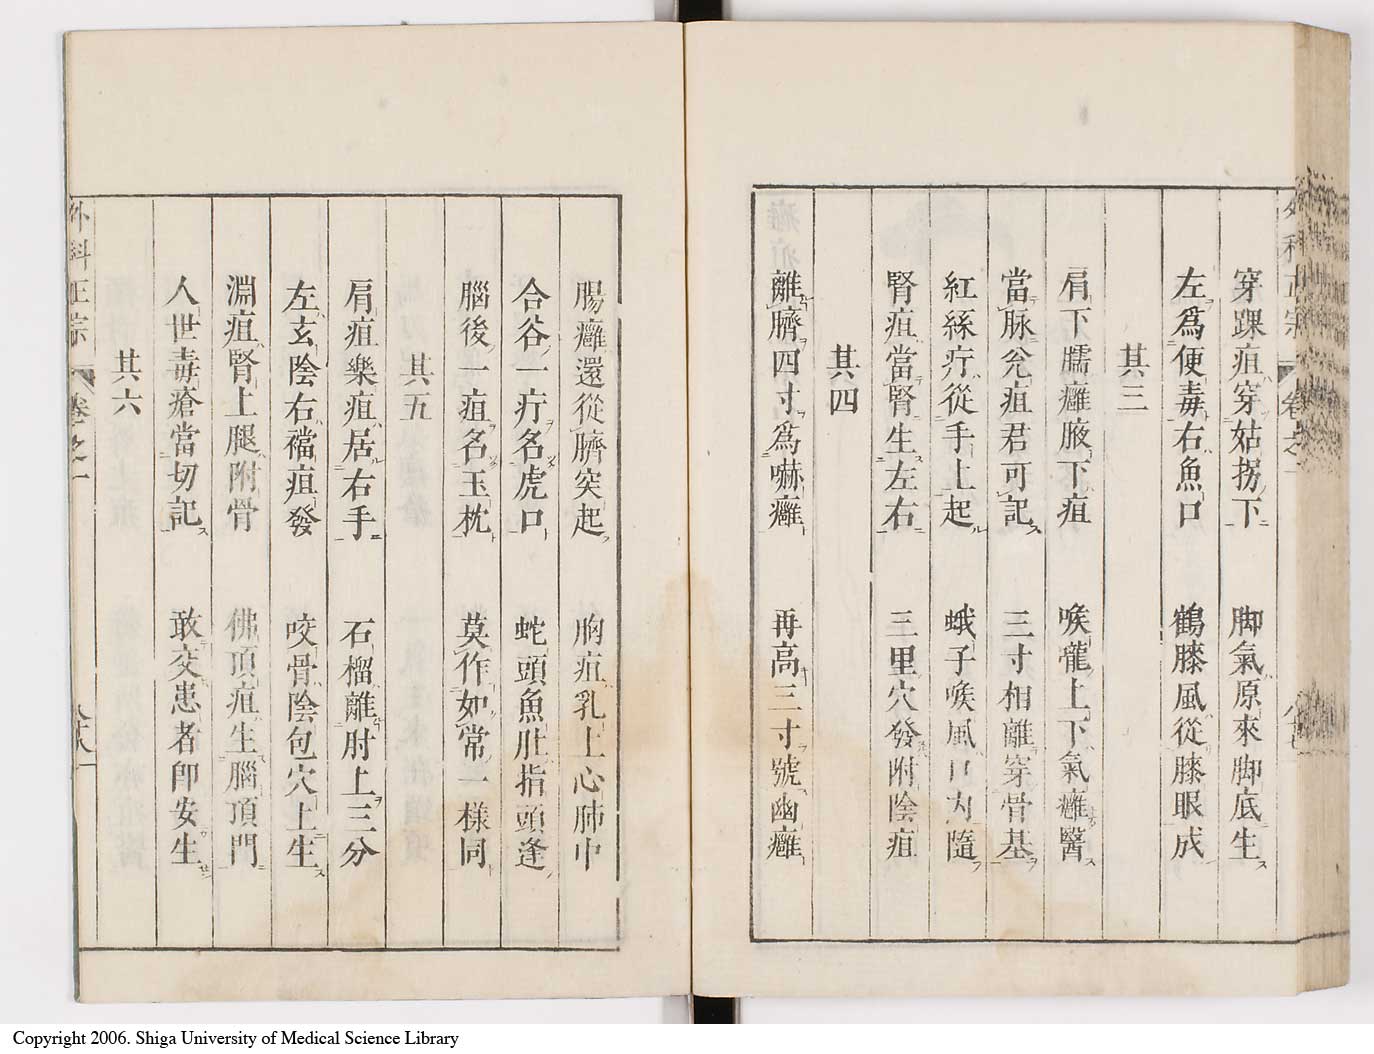 外科正宗 卷之一
穿踝疽穿姑拐下 脚氣原來脚底生
左爲便毒右魚口 鶴膝風從膝眼成
其三
肩下臑癰腋下疽 喉嚨上下氣癰醫
當脉兊疽君可記 三寸相離穿骨基
紅絲疔從手上起 蛾子喉風口内隨
腎疽當腎生左右 三里穴發附陰疽
其四
離臍四寸爲嚇癰 再高三寸號幽癰
腸癰還從臍突起 胸疽乳上心肺中
合谷一疔名虎口 蛇頭魚肚指頭逢
腦後一疽名玉枕 莫作如常一樣同
其五
肩疽樂疽居右手 石榴離肘上三分
左玄陰右襠疽發 咬骨陰包穴上生
淵疽腎上腿附骨 佛頂疽生腦頂門
人世毒瘡當切記 敢交患者卽安生
其六
外科正宗 卷之一
Copyright 2006. Shiga University of Medical Science Library